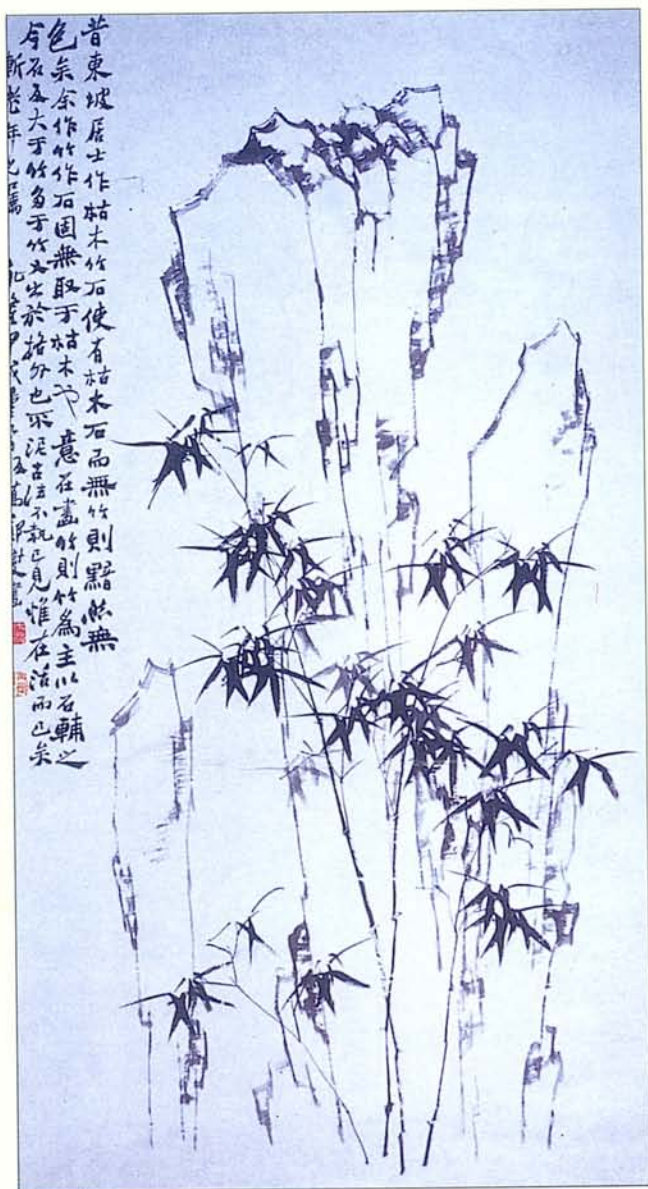 昔東坡居士作枯木竹石使有枯木石而無竹則黯然無
色矣余作竹作石固無取于枯木也意在畫竹則竹為主以石輔之
今石反大于竹多于竹又出於格外也不泥古法不執己見惟在活而已矣
老年